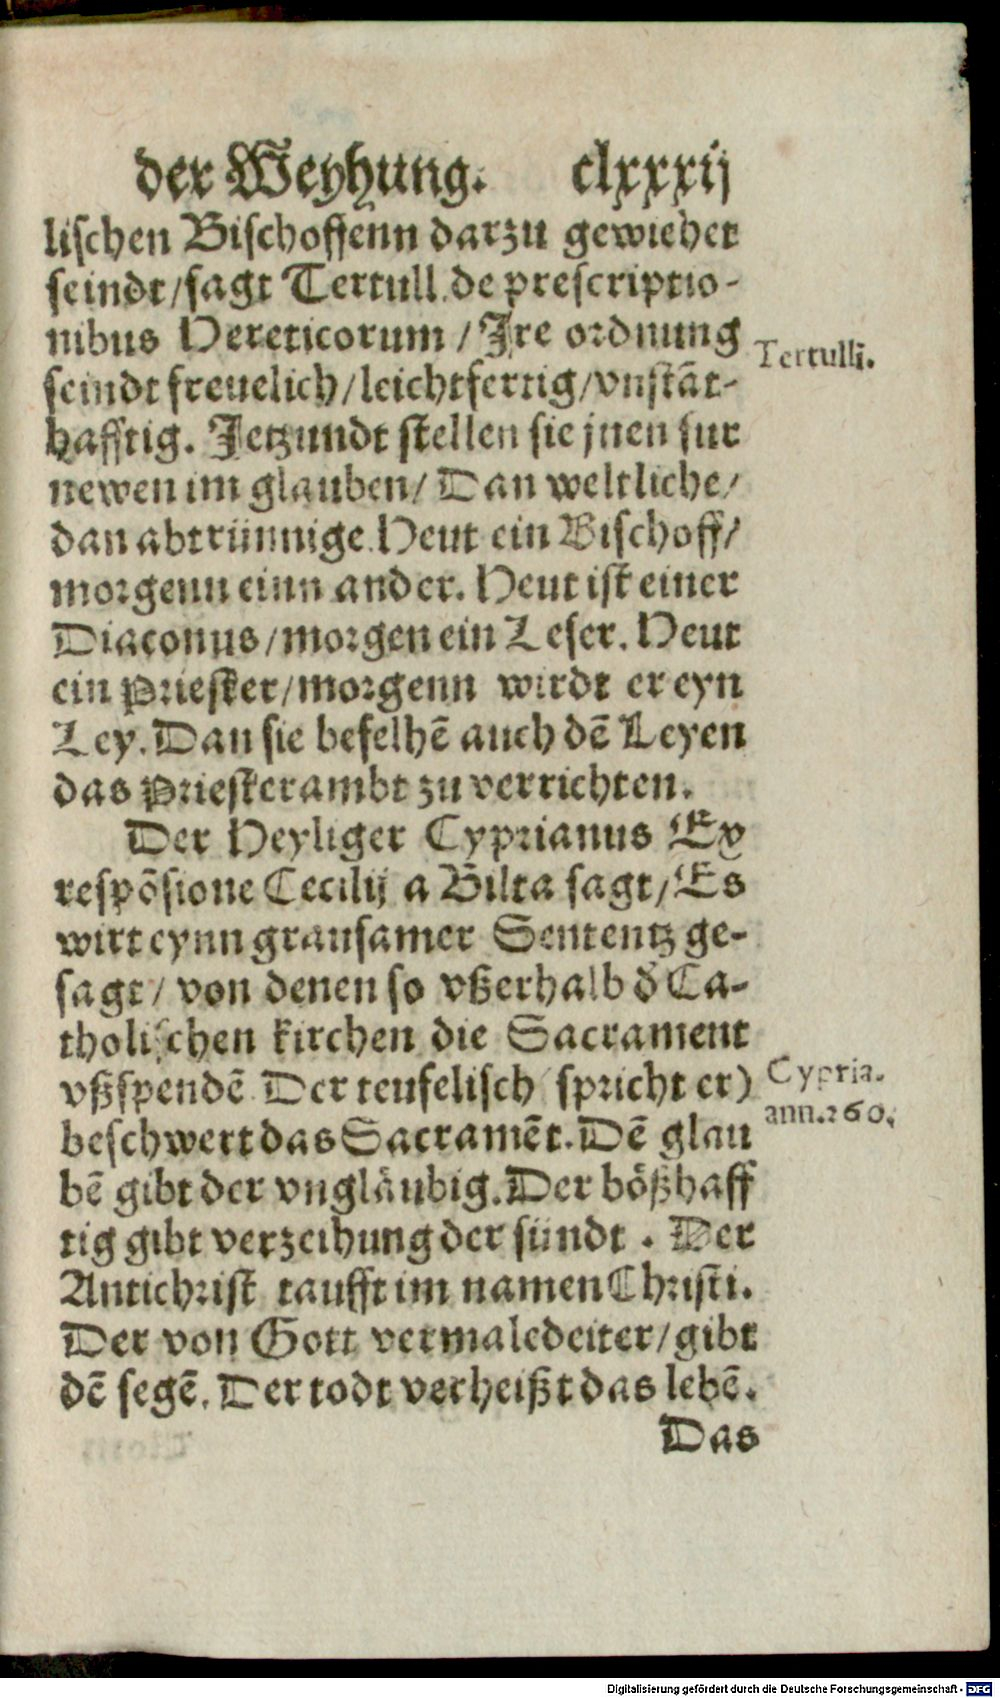 der Weyhung. clxxxij
lischen Bischoffenn darzu geweihet
seindt/sagt Tertull.de prescriptio-
nibus Hereticorum /Jre ordnung
Tertulli.
seindt freuelich/leichtfertig/vnstāt-
hafftig. Jetzundt stellen sie jnen fur
newen im glauben/ Dan weltliche/
dan abtrünnige.Heut ein Bischoff/
morgenn einn ander. Heut ist einer
Diaconus/morgen ein Leser. Heut
ein Priester/morgenn wirdt er eyn
Ley. Dan sie befelhē auch dē Leyen
das Priesterambt zu verrichten.
Der Heyliger Cyprianus Ex
respōsione Cecilij a Bilta sagt/Es
wirt eynn grausamer Sententz ge-
sagt/ von denen so vßerhalb d̄ Ca-
tholischen kirchen die Sacrament
vßspendē Der teufelisch (spricht er)
Cypria.
ann.260.
beschwert das Sacramēt. Dē glau
bē gibt der vngläubig. Der bößhaff
tig gibt verzeihung der sündt . Der
Antichrist taufft im namen Christi.
Der von Gott vermaledeiter/gibt
dē segē. Der todt verheißt das lebē.
Das
Digitalisierung gefördert durch die Deutsche Forschungsgemeinschaft - DFG